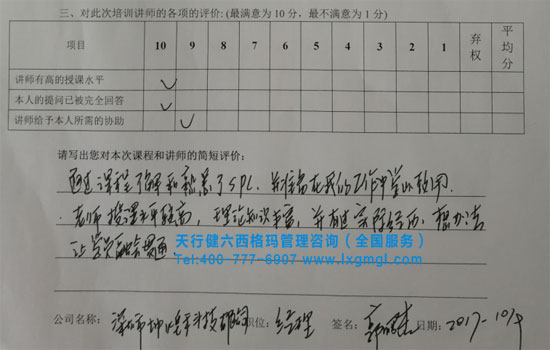 三、对此次培训讲师的各项的评价:(最满意为 10 分，最不满意为 1 分)
项目 10 9 8 7 6 5 4 3 2 1 弃权 平均分
讲师有高的授课水平
本人的提问已被完全回答
讲师给予本人所需的协助
请写出您对本次课程和讲师的简短评价:
通过课程了解和熟悉了SPC，并准备在我们工作中学以致用.
老师授课水平较高，理论知识丰富，并有过实际经历，想办法
让学员融会贯通
天行健六西格玛管理咨询（全国服务）
Tel:400-777-6907 www.lxgmgl.com
公司名称: 深圳市坤 科技 职位: 签名: 日期: 2017-10/